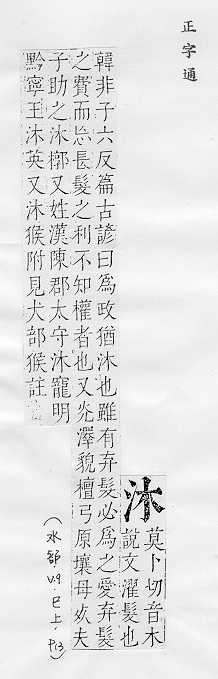 正字通
沐 莫卜切音木
說文濯髮也
韓非子六反篇古諺曰爲政猶沐也雖有弃髮必爲之愛弃髮
之費而㤀長髮之利不知權者也又光澤貌檀弓原壤母死夫
子助之沐槨又姓漢陳郡太守沐寵明
黔寧王沐英又沐猴附見犬部猴註
(水部 V.9.巳上.P.13)